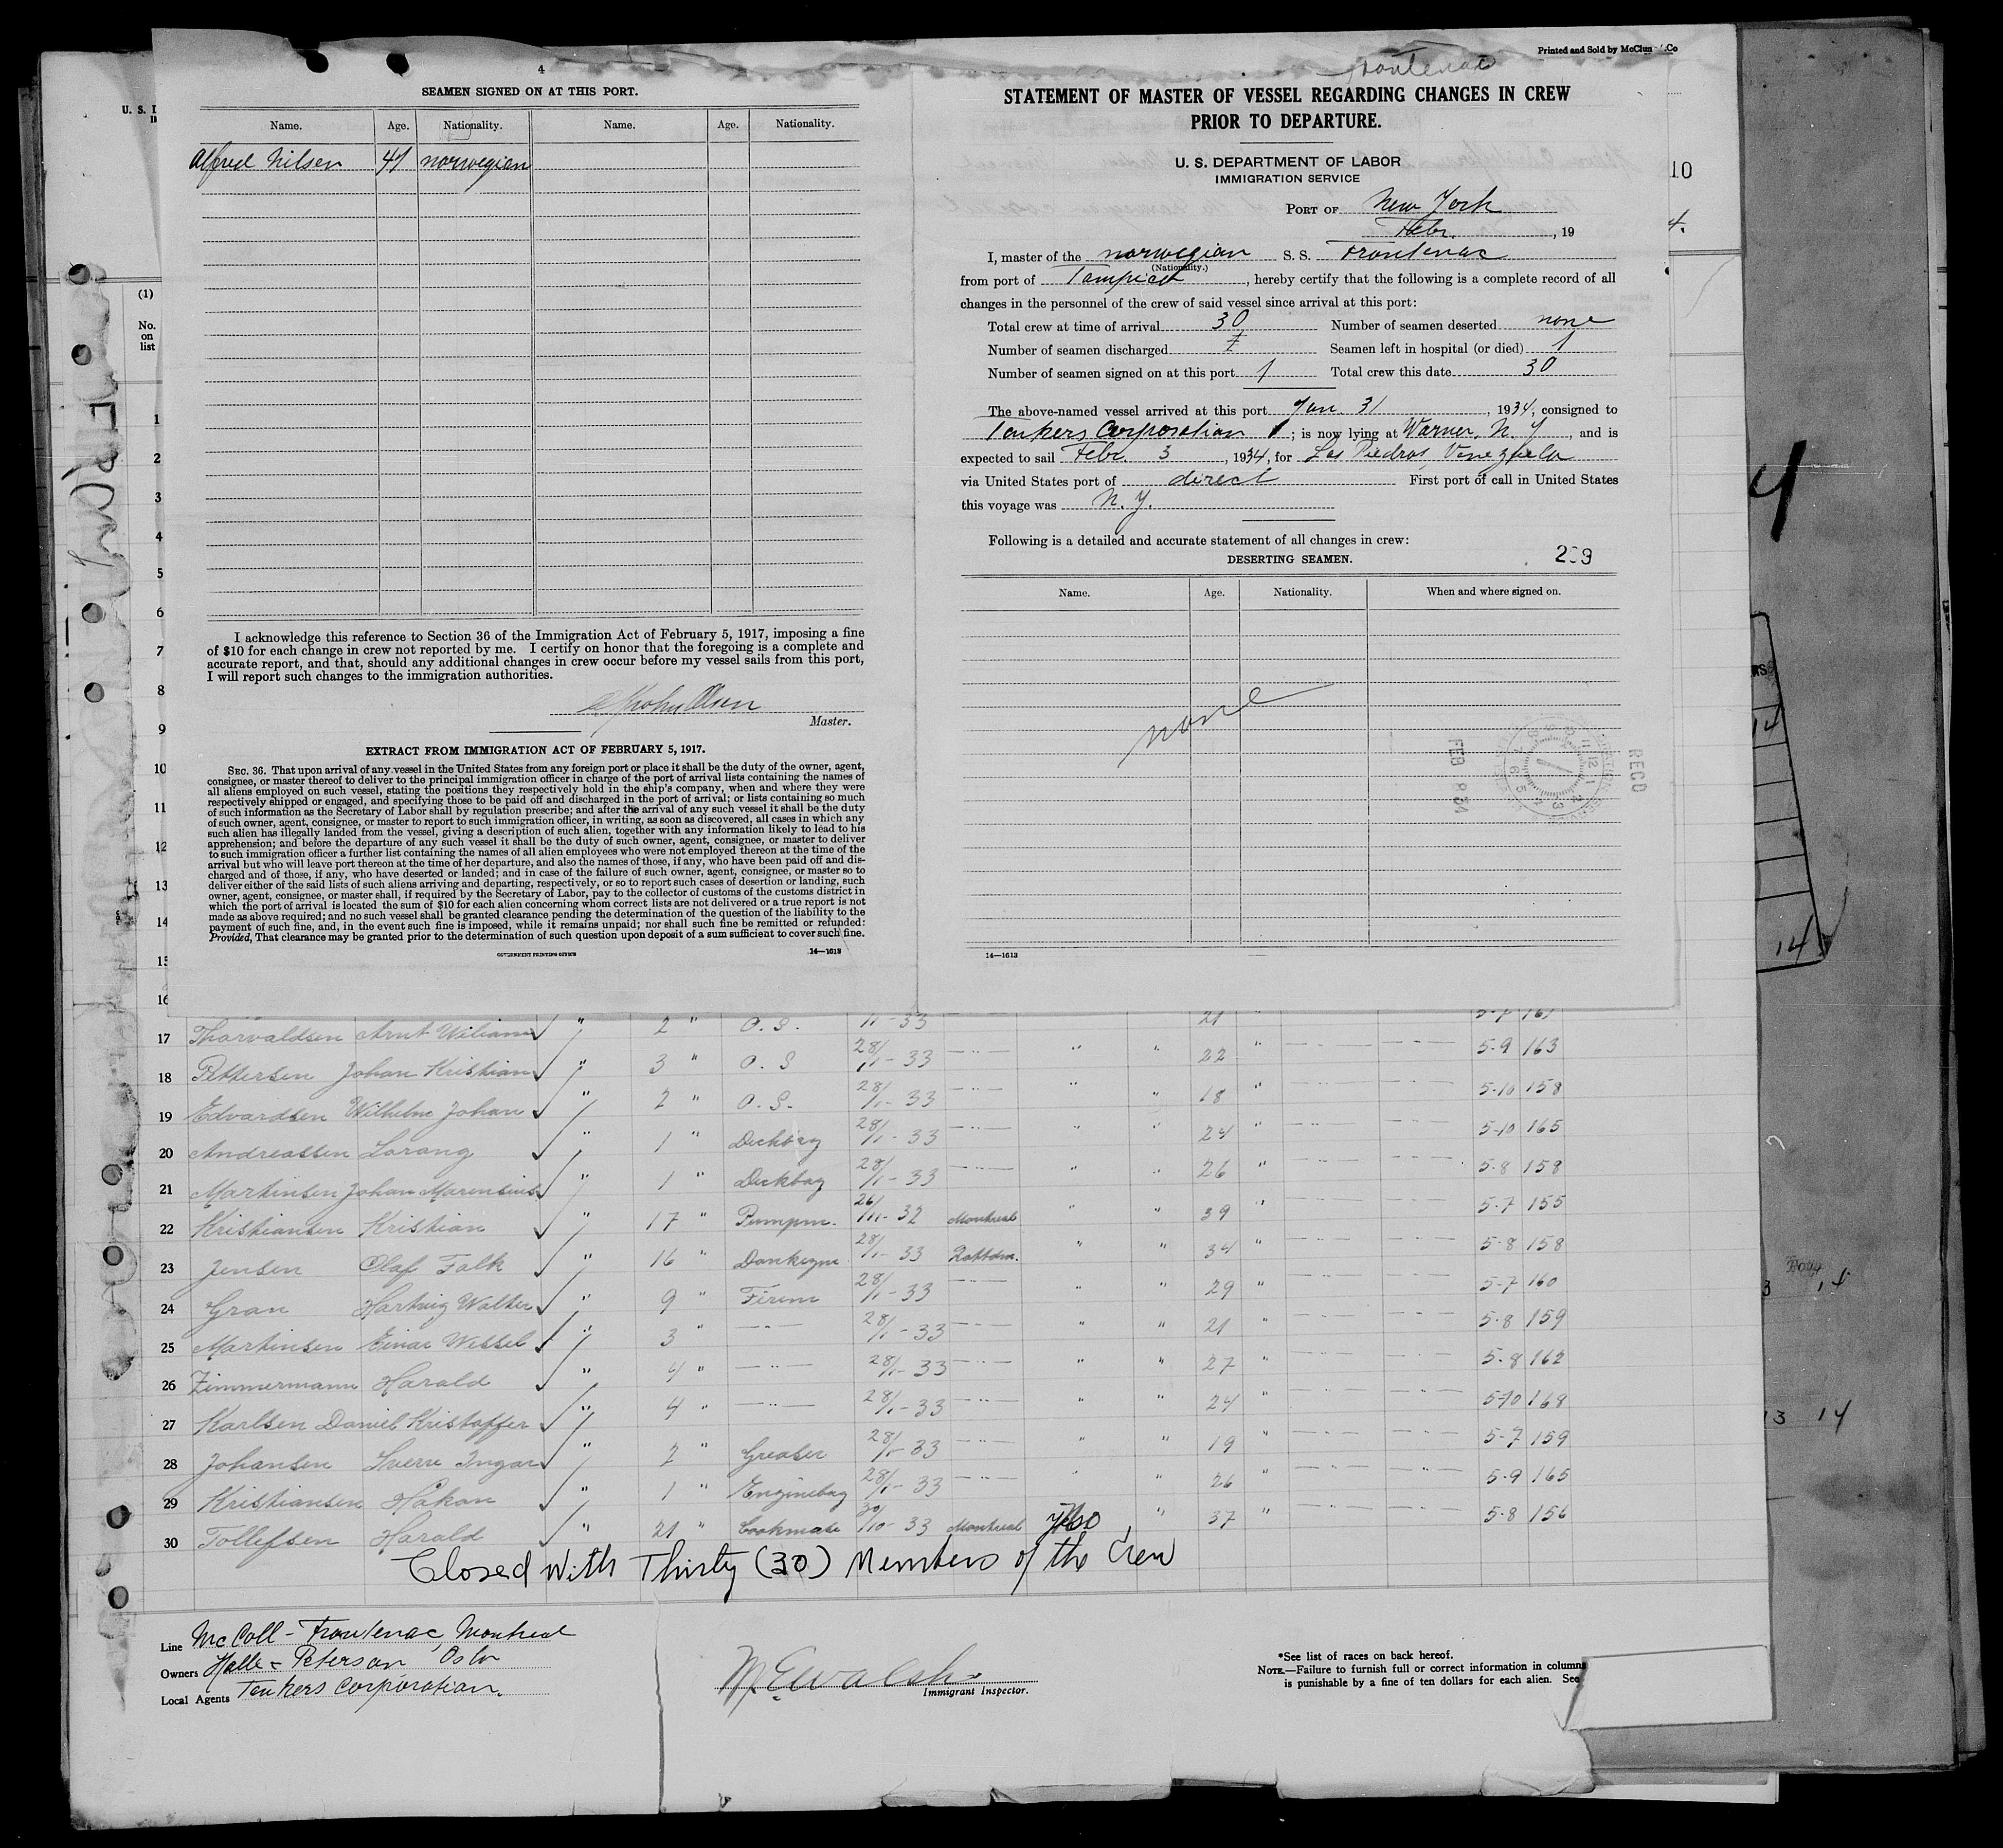 4
SEAMEN SIGNED ON AT THIS PORT.
Name. Age. Nationality. Name. Age. Nationality.
Alfred Nilsen 41 norwegian
I acknowledge this reference to Section 36 of the Immigration Act of February 5, 1917, imposing a fine
of $10 for each change in crew not reported by me. I certify on honor that the foregoing is a complete and
accurate report, and that, should any additional changes in crew occur before my vessel sails from this port,
I will report such changes to the immigration authorities.
Olsen
Master.
EXTRACT FROM IMMIGRATION ACT OF FEBRUARY 5, 1917.
SEC. 36. That upon arrival of any vessel in the United States from any foreign port or place it shall be the duty of the owner, agent,
consignee, or master thereof to deliver to the principal immigration officer in charge of the port of arrival lists containing the names of
all aliens employed on such vessel, stating the positions they respectively hold in the ship's company, when and where they were
respectively shipped or engaged, and specifying those to be paid off and discharged in the port of arrival; or lists containing so much
of such information as the Secretary of Labor shall by regulation prescribe; and after the arrival of any such vessel it shall be the duty
of such owner, agent, consignee, or master to report to such immigration officer, in writing, as soon as discovered, all cases in which any
such alien has illegally landed from the vessel, giving a description of such alien, together with any information likely to lead to his
apprehension; and before the departure of any such vessel it shall be the duty of such owner, agent, consignee, or master to deliver
to such immigration officer a further list containing the names of all alien employees who were not employed thereon at the time of the
arrival but who will leave port thereon at the time of her departure, and also the names of those, if any, who have been paid off and dis-
charged and of those, if any, who have deserted or landed; and in case of the failure of such owner, agent, consignee, or master so to
deliver either of the said lists of such aliens arriving and departing, respectively, or so to report such cases of desertion or landing, such
owner, agent, consignee, or master shall, if required by the Secretary of Labor, pay to the collector of customs of the customs district in
which the port of arrival is located the sum of $10 for each alien concerning whom correct lists are not delivered or a true report is not
made as above required; and no such vessel shall be granted clearance pending the determination of the question of the liability to the
payment of such fine, and, in the event such fine is imposed, while it remains unpaid; nor shall such fine be remitted or refunded:
Provided, That clearance may be granted prior to the determination of such question upon deposit of a sum sufficient to cover such fine.
GOVERNMENT PRINTING OFFICE 14—1613
Printed and Sold by McClun Co
Frontenac
STATEMENT OF MASTER OF VESSEL REGARDING CHANGES IN CREW
PRIOR TO DEPARTURE.
U. S. DEPARTMENT OF LABOR
IMMIGRATION SERVICE
PORT OF New York
Febr. , 19
I, master of the norwegian S. S. Frontenac
(Nationality.)
from port of Tampico , hereby certify that the following is a complete record of all
changes in the personnel of the crew of said vessel since arrival at this port:
Total crew at time of arrival 30 Number of seamen deserted none
Number of seamen discharged Seamen left in hospital (or died) 1
Number of seamen signed on at this port 1 Total crew this date 30
The above-named vessel arrived at this port Jan. 31 , 1934, consigned to
Tankers Corporation ; is now lying at Warner, N. Y , and is
expected to sail Febr. 3 , 1934, for Las Piedras, Venezuela
via United States port of direct First port of call in United States
this voyage was N. Y.
Following is a detailed and accurate statement of all changes in crew:
DESERTING SEAMEN.
Name. Age. Nationality. When and where signed on.
none
RECD
FEB 8 34
14—1613
U. S. I
(1)
No.
on
list
1
2
3
4
5
6
7
8
9
10
11
12
13
14
15
16
17 Thorvaldsen Arnt Wiliam " 2 " O. S. 33 21 "
18 Pettersen Johan Kristian " 3 " O. S 28/1-33 " " 22 " 5-9 163
19 Edvardsen Wilhelm Johan " 2 " O. S. 28/1-33 " 18 " 5-10 158
20 Andreassen Lorang " 1 " Deckboy 28/1-33 " " 24 " 5-10 165
21 Martinsen Johan Marensius " 1 " Deckboy 28/1-33 " " 26 " 5-8 158
22 Kristiansen Kristian " 17 " Pumpm. 26/11-32 Montreal " " 39 " 5-7 155
23 Jensen Olaf Falk " 16 " Donkeym 28/1-33 Rottdm. " " 34 " 5-8 158
24 Gran Hartvig Walter " 9 " Firem 28/1-33 " " 29 " 5-7 160
25 Martinsen Einar Wessel " 3 " 28/1-33 " " 21 " 5-8 159
26 Zimmermann Harald " 4 " 28/1-33 " " 27 " 5-8 162
27 Karlsen Daniel Kristoffer " 4 " 28/1-33 " " 24 " 5-10 168
28 Johansen Sverre Ingar " 2 " Greaser 28/1-33 " " 19 " 5-7 159
29 Kristiansen Håkon " 1 " Engineboy 28/1-33 " " 26 " 5-9 165
30 Tollefsen Harald " 21 " Cookmate 30/10-33 Montreal " 37 " 5-8 156
Closed with Thirty (30) Members of the Crew
Line McColl-Frontenac, Montreal
Owners Halle & Peterson Oslo
Local Agents Tankers Corporation.
M. E. Walsh
Immigrant Inspector.
*See list of races on back hereof.
NOTE.—Failure to furnish full or correct information in columns
is punishable by a fine of ten dollars for each alien. See
10
4.
4
14
14
13 14